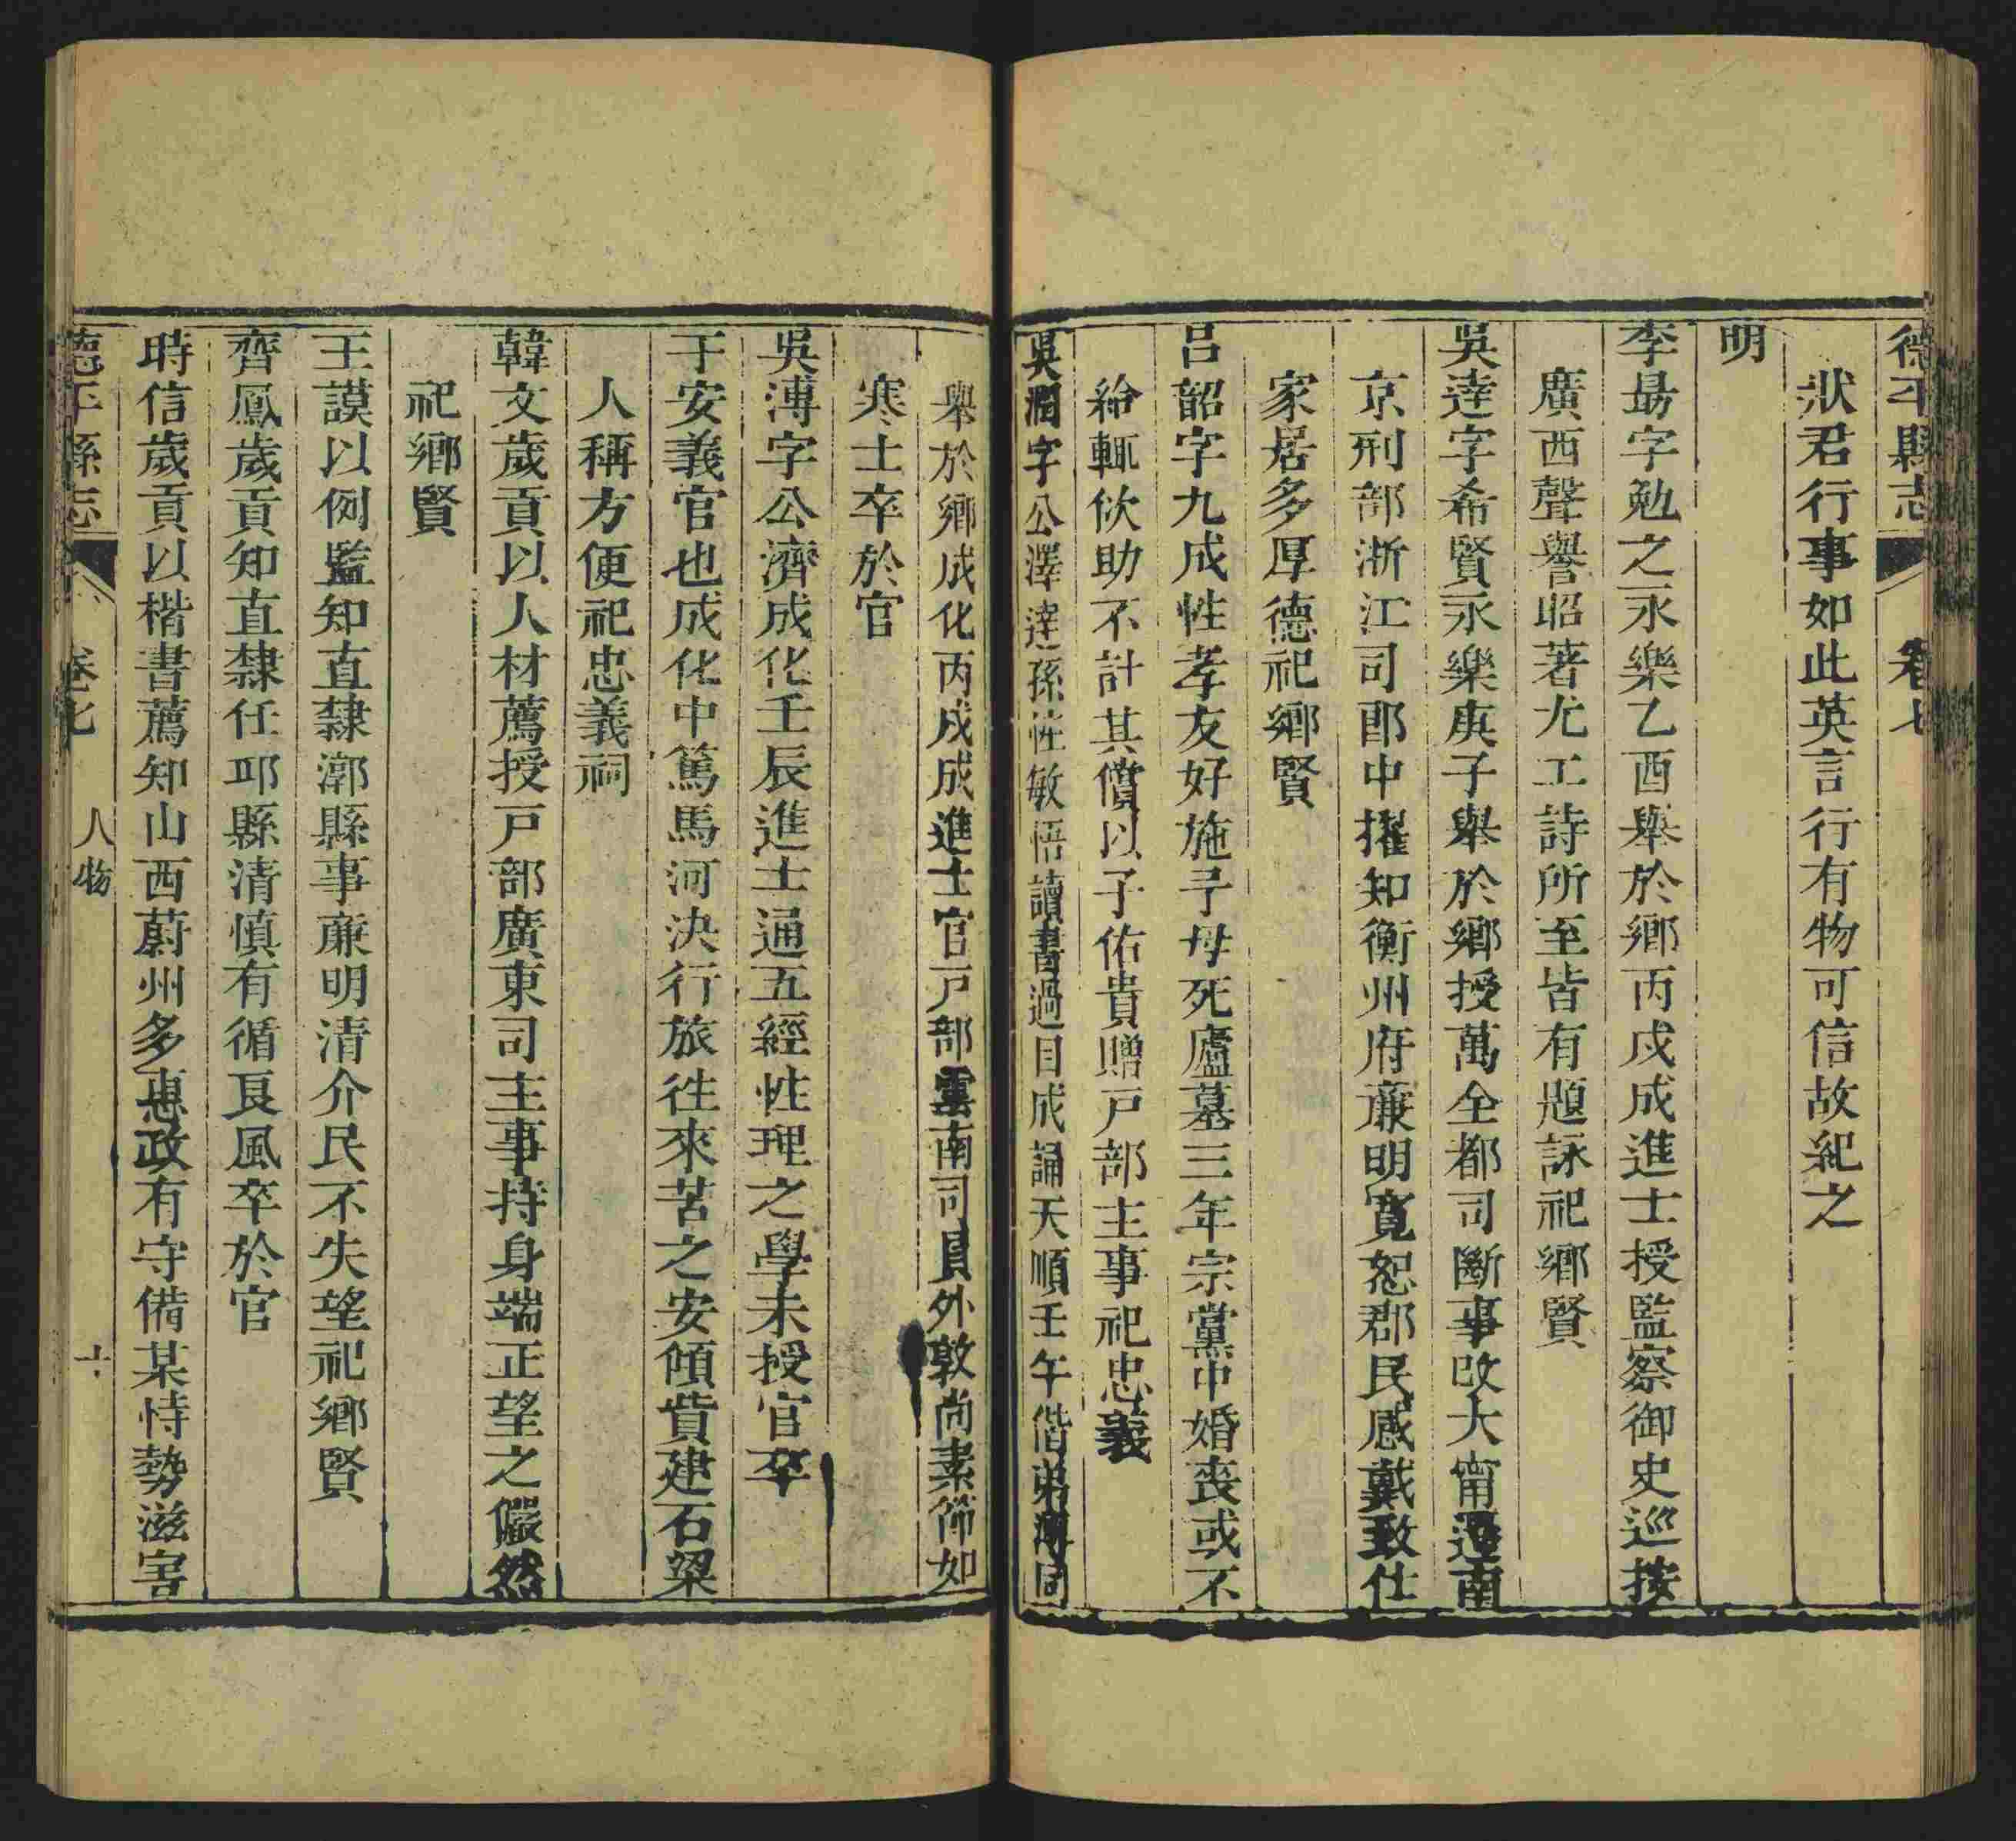 德平縣志 卷七
狀君行事如此英言行有物可信故紀之
明
李勗字勉之永樂乙酉舉於鄉丙戌成進士授監察御史巡按
廣西聲譽昭著尤工詩所至皆有題詠祀鄉賢
吳達字希賢永樂庚子舉於鄉授萬全都司斷事改大甯遷南
京刑部浙江司郎中擢知衡州府亷明寬恕郡民感戴致仕
家居多厚德祀鄉賢
呂韶字九成性孝友好施予母死廬墓三年宗黨中婚喪或不
給輒佽助不計其償以子佑貴贈戸部主事祀忠義
吳潤字公澤達孫性敏悟讀書過目成誦天順壬午偕弟溥同
舉於鄉成化丙戌成進士官戸部雲南司員外敦尚素節如
寒士卒於官
吳溥字公濟成化壬辰進士通五經性理之學未授官卒
于安義官也成化中篤馬河決行旅往來苦之安傾貲建石梁
人稱方便祀忠義祠
韓文歲貢以人材薦授戸部廣東司主事持身端正望之儼然
祀鄉賢
王謨以例監知直隸漷縣事亷明清介民不失望祀鄉賢
齊鳳歲貢知直隸任邱縣清慎有循良風卒於官
時信歲貢以楷書薦知山西蔚州多惠政有守備某恃勢滋害
德平縣志 卷七 人物 十